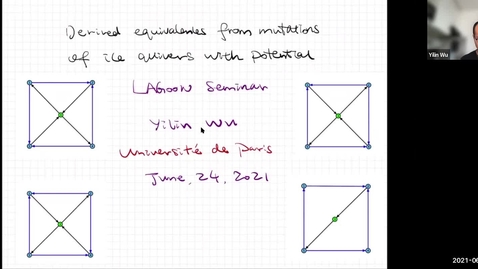 Derived equivalences from mutations
of ice quivers with potential
LAGOON Seminar
Yilin Wu
Université de Paris
June, 24, 2021
Yilin Wu